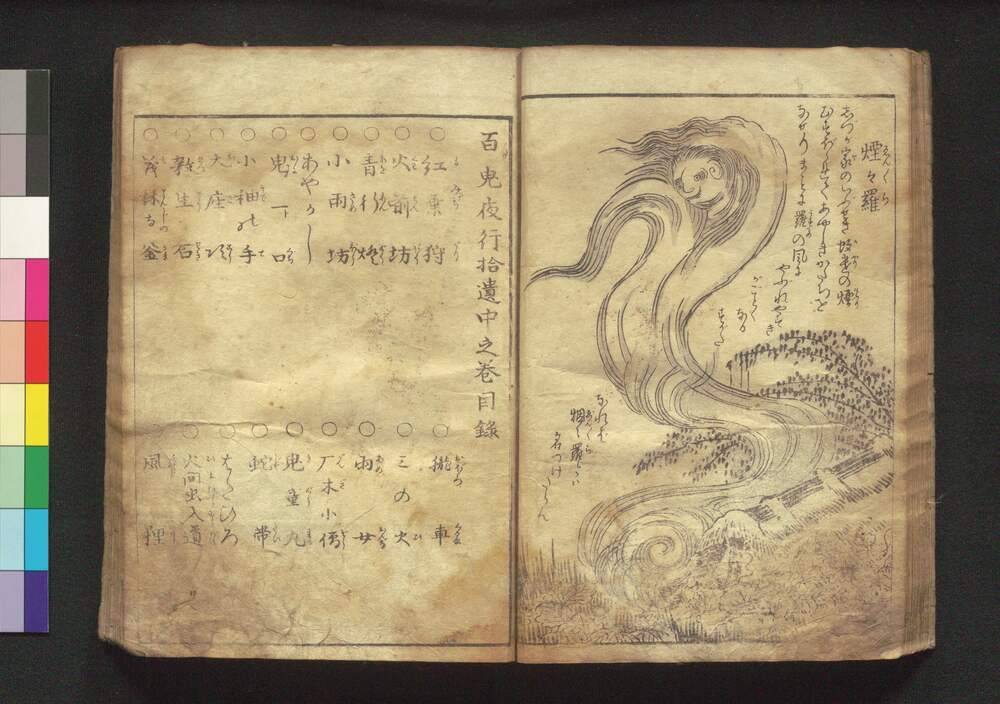 煙々羅
ゑんゝら
しづが家のいぶせき蚊遣の煙
むすぼゝれてあやしきかたちを
なせりまことに羅の風に
やぶれやすき
がごとく
なる
すがた
なれば
烟々羅とハ
名づけたらん
百鬼夜行拾遺中之巻目録
○紅葉狩
○朧車
○火前坊
○ミの火
○青行燈
○雨女
○小雨坊
○厂木小僧
○あやかし
○鬼童丸
○鬼一口
○蛇帯
○小袖の手
○はたひろ
○大座頭
○火間虫入道
○殺生石
○風狸
○茂林寺釜